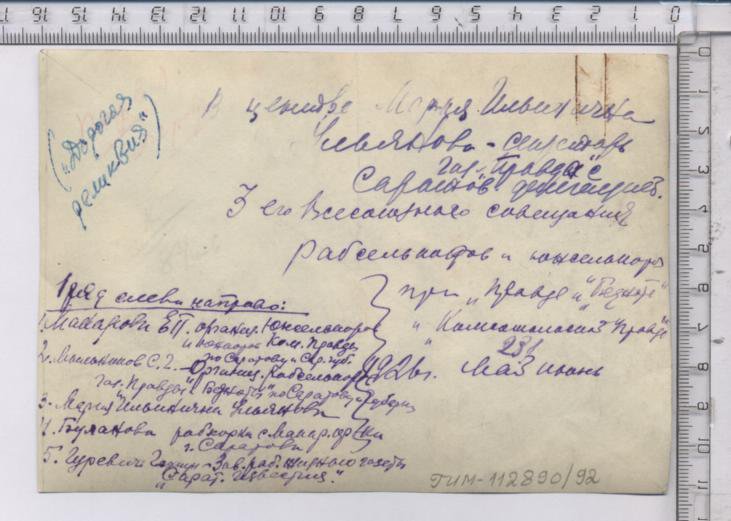 ("Дорогая
реликвия")
В центре Мария Ильинична
Ульянова - секретарь
газ. "Правда" с
Саратов. делегацией.
3его Всесоюзного совещания
рабселькоров и юнселькоров
при "Правде" и "Бедноте"
и "Комсомольской Правде"
1926 г. май июнь
1 ряд слева направо:
1. Макарова Е.П. организ. Юнселькоров
и юнкоров Ком. Правды
по Саратову и Сар. губ.
2. С.2. - Организ. Рабселькоров
газ. "Правды" и "Бедноты" по Саратову и губернии
3. Мария Ильинична Ульянова
4. Буланова рабкорка с
г. Саратова
5. Гуревич - Зав. раб. газеты
"Сарат. Известия".
ГИМ-112890/92
0 1 2 3 4 5 6 7 8 9 10 11 12 13 14 15 16 17
0 1 2 3 4 5 6 7 8 9 10 11